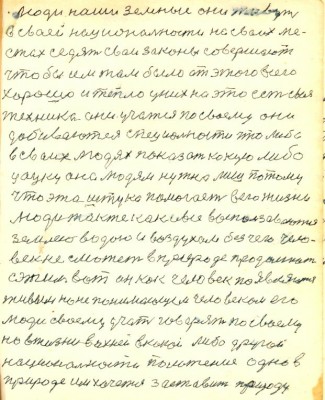 Люди наши земные они живут
в своей национальности на своих ме-
стах седят свои законы совершают
чтобы им там было от этого всего
хорошо и тепло у них на это есть своя
техника. они учатся по своему они
добиваются специальности что либо
в своих людях показат какую либо
она людям нужна потому
что эта штука помогает в его жизни
люди такие каковые выползаваются
землею водою и воздухом без чего чело-
век не сможет в природе продолжат
вот он как человек появляется
живым не понимающим человеком его
люди своему учат говорят по своему
но в жизни в какой либо другой
национальности положение одно в
природе им хочется заставит природу